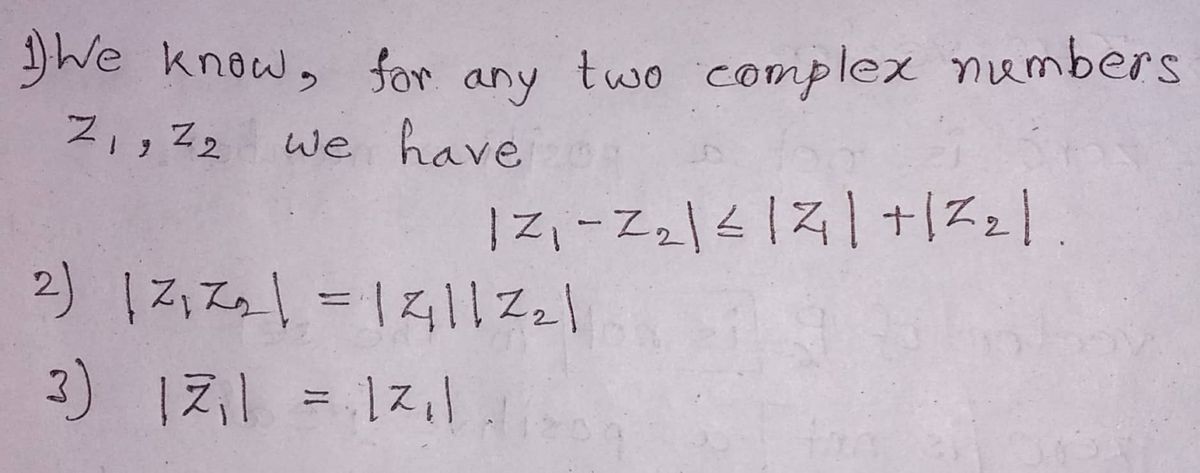 1) We know, for any two complex numbers
z₁, z₂ we have
|z₁-z₂| ≤ |z₁| + |z₂|.
2) |z₁z₂| = |z₁||z₂|
3) |z̄₁| = |z₁|.